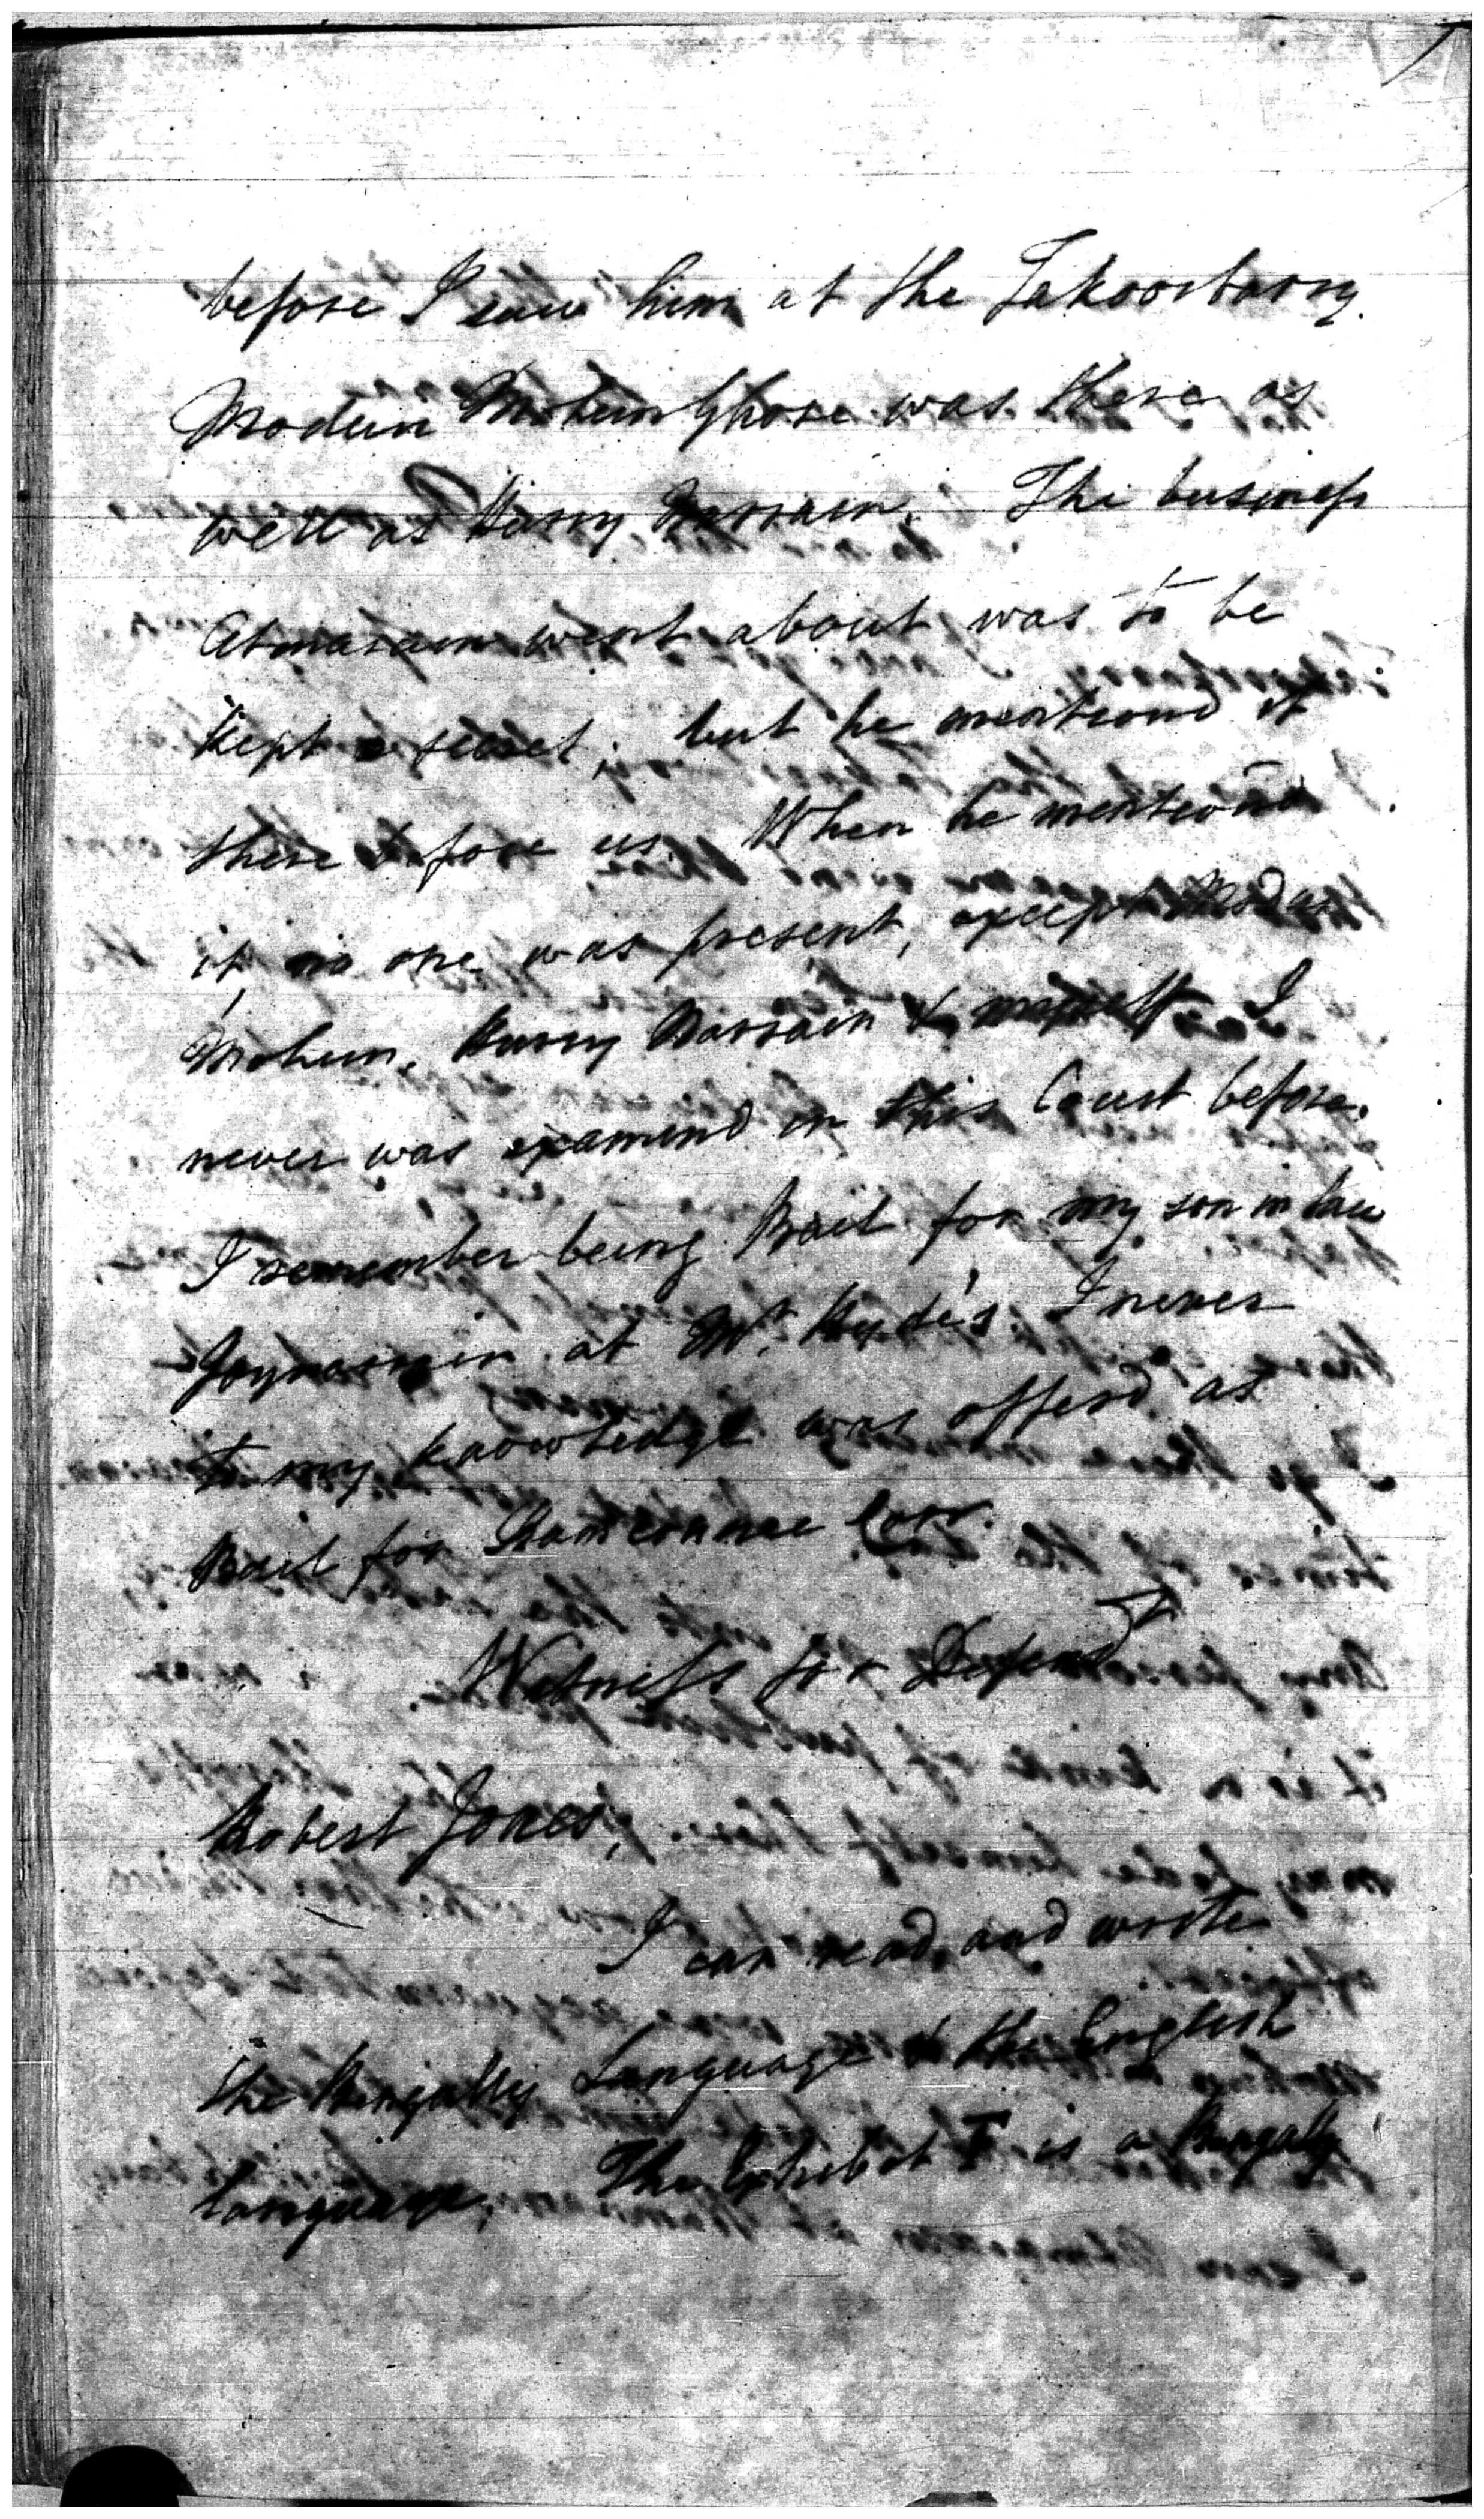 before I saw him at the Takoorbarry.
Modun Mohun Ghose was there as
well as Hurry Narrain. The business
Atmaram went about was to be
kept a secret; but he mentiond it
there before us. When he mentiond
it no one was present, except Modun
Mohun, Hurry Narrain & myself. I
never was examind in this Court before.
I remember being Bail for my son in law
Joynarrain at Mr. Hyde's. I never
to my knowledge was offerd as
Bail for
Witness for Defendt
Robert Jones,
I can read and write
the Bengally Language & the English
language. The Exhibit is a Bengally